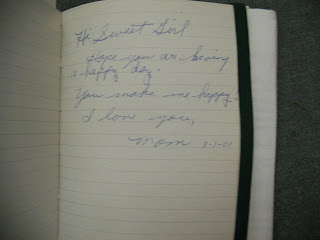 Hi Sweet Girl
Hope you are having
a happy day.
You make me happy.
I love you,
Mom